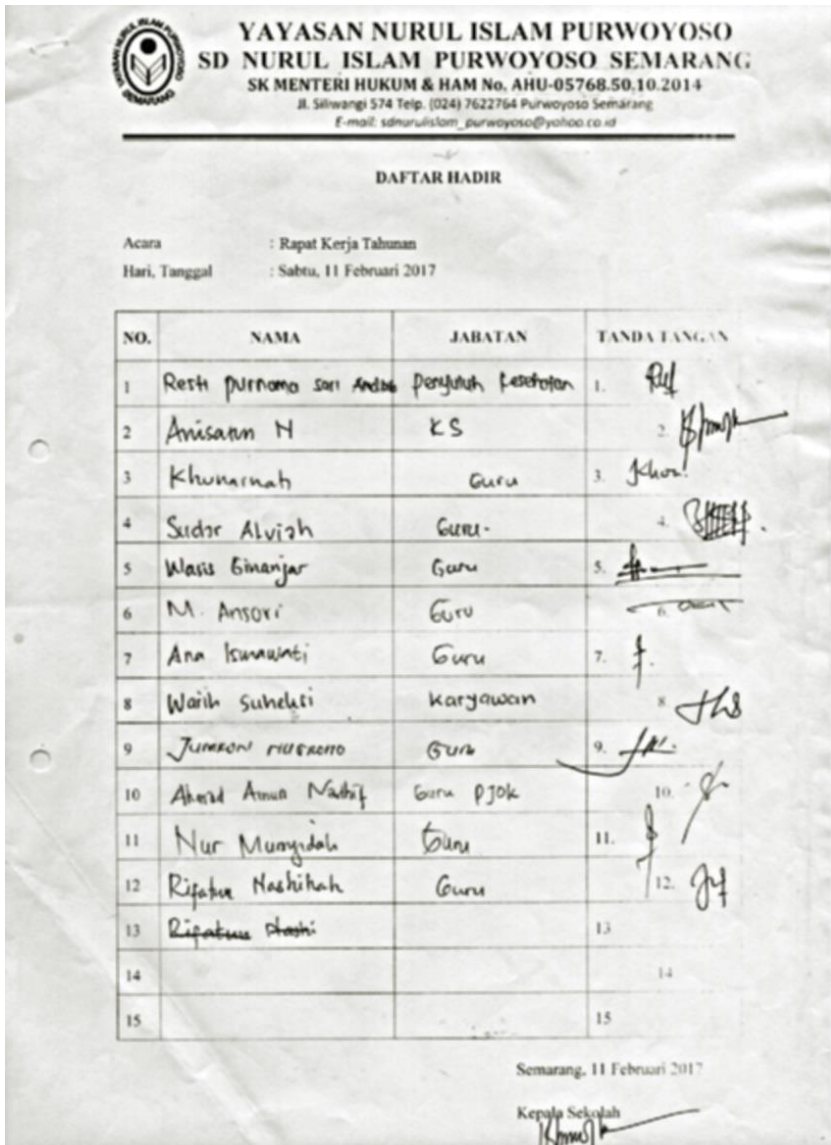 YAYASAN NURUL ISLAM PURWOYOSO SEMARANG
YAYASAN NURUL ISLAM PURWOYOSO
SD NURUL ISLAM PURWOYOSO SEMARANG
SK MENTERI HUKUM & HAM No. AHU-05768.50.10.2014
Jl. Siliwangi 574 Telp. (024) 7622764 Purwoyoso Semarang
E-mail: sdnurulislam_purwoyoso@yahoo.co.id
DAFTAR HADIR
Acara : Rapat Kerja Tahunan
Hari, Tanggal : Sabtu, 11 Februari 2017
NO. NAMA JABATAN TANDA TANGAN
1 Resti purnama sari Penyuluh kesehatan 1.
2 Anisatun N KS 2.
3 Guru 3.
4 Sudar Alviah Guru. 4.
5 Wasis Ginanjar Guru 5.
6 M. Ansori Guru 6.
7 Ana Ismawati Guru 7.
8 Warih Karyawan 8.
9 Guru 9.
10 Ahmad Guru PJOK 10.
11 Nur Guru 11.
12 Rifatun Nashihah Guru 12.
13 13
14 14
15 15
Semarang, 11 Februari 2017
Kepala Sekolah